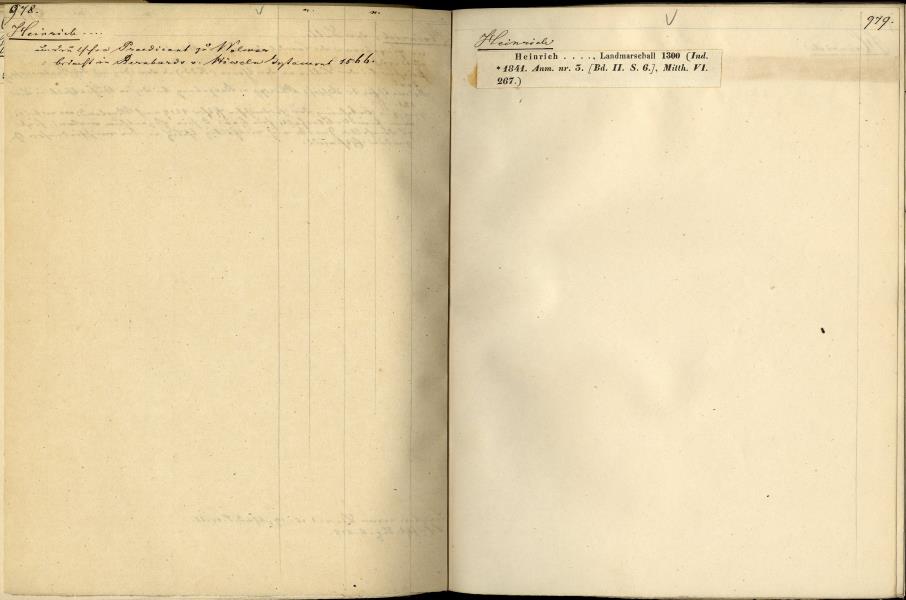 978.
Heinrich ....
undeutscher Praedicant zu Wolmar
bedacht in Bernhards v. Höweln Testament 1566.
979.
Heinrich
Heinrich . . . ., Landmarschall 1300 (Ind.
*1841. Anm. nr. 3. [Bd. II. S. 6.], Mitth. VI.
267.)